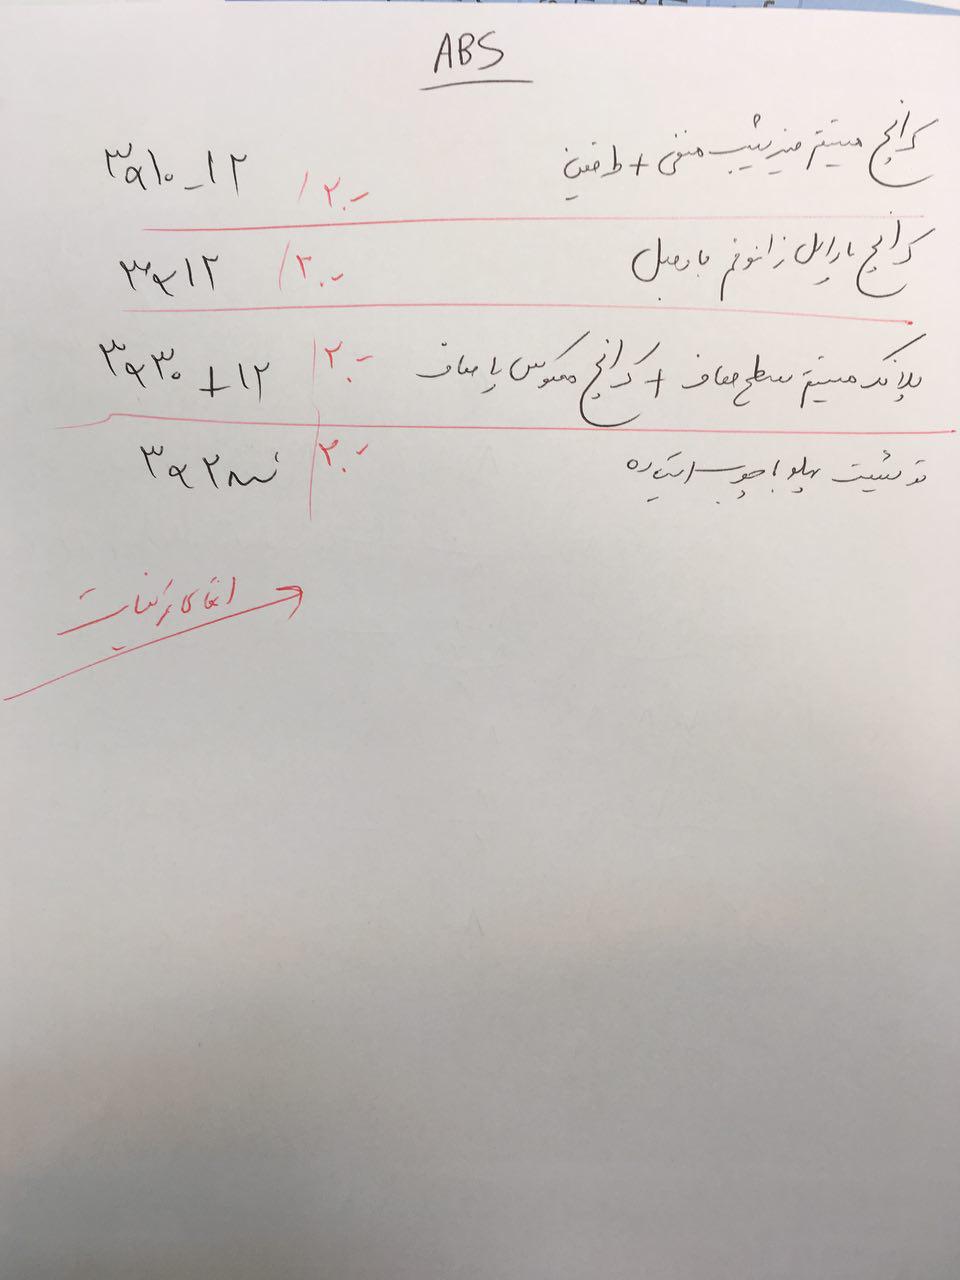 ABS
کرانچ مستقیم میز شیب منفی + طرفین ۲۰- / ۱۲-۱۰×۳
کرانچ پارالل زانو خم با دمبل ۲۰- / ۱۲×۳
پلانک مستقیم سطح صاف + کرانچ معکوس پا صاف ۲۰- | ۱۲ + ۳۰×۳
تثیت پهلو با چوب ایستاده ۲۰- | ۲×۳
تمرینات